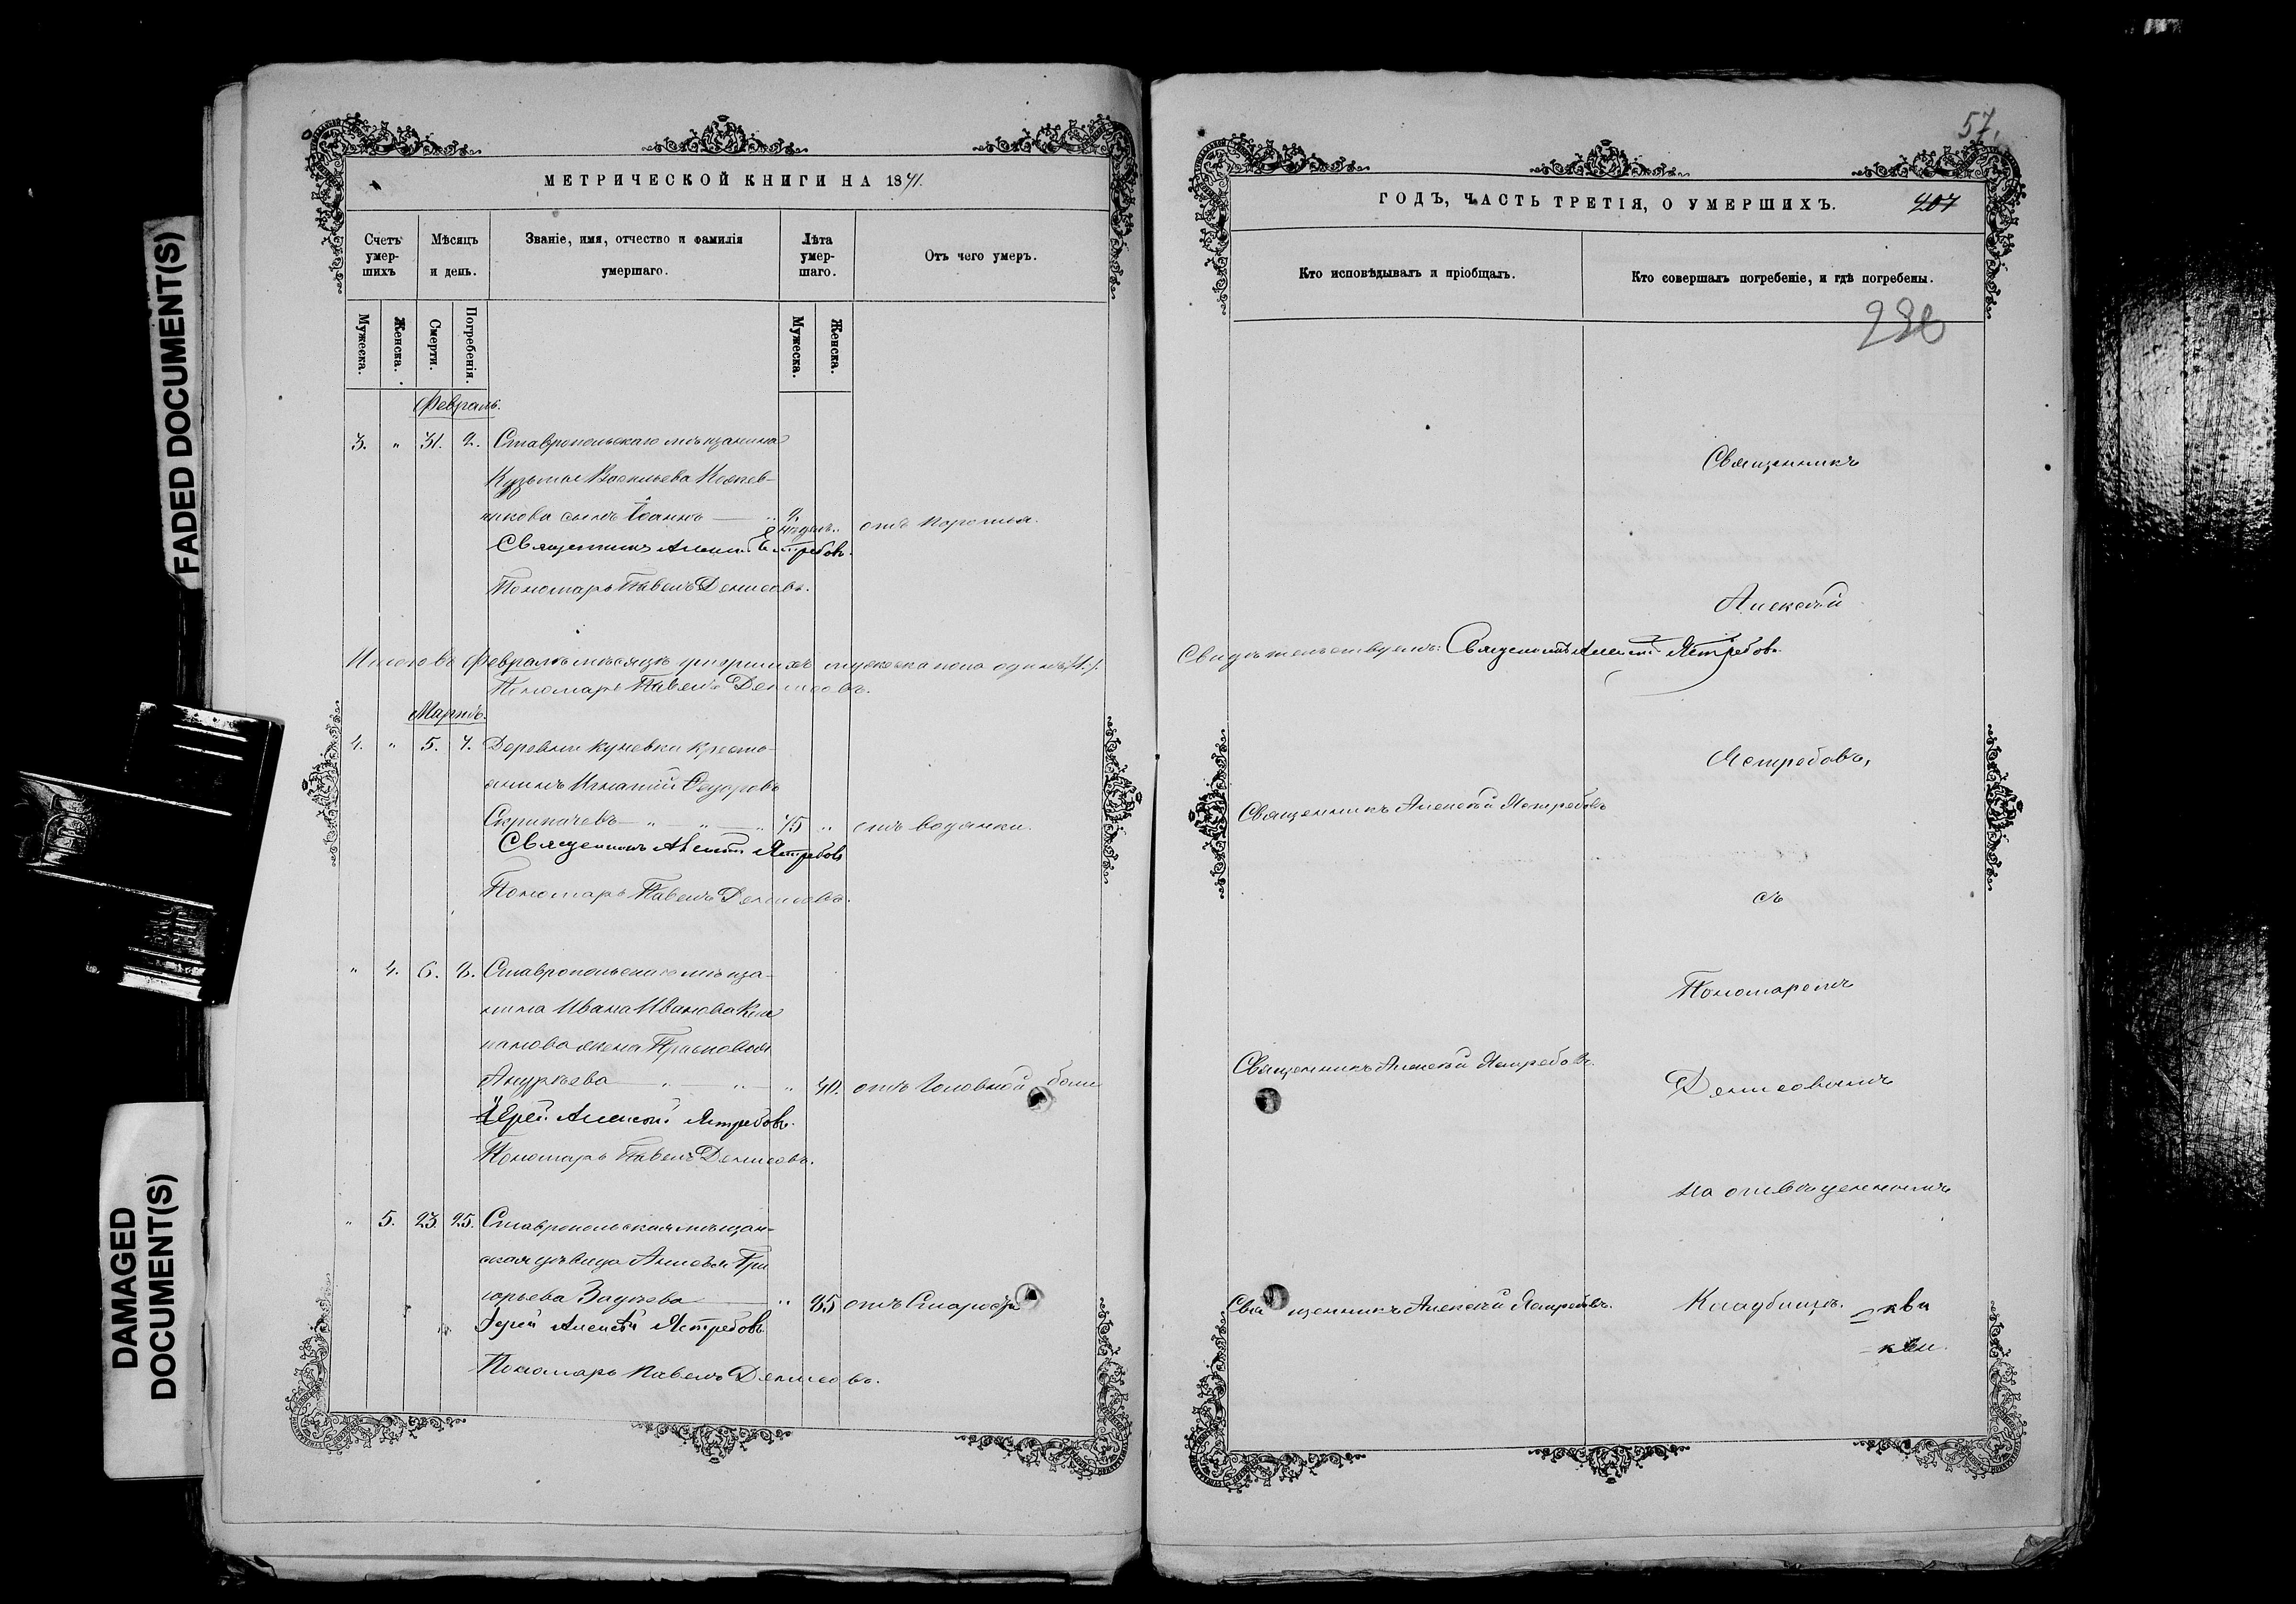 FADED DOCUMENT(S)
DAMAGED
DOCUMENT(S)
МЕТРИЧЕСКОЙ КНИГИ НА 1871.
Счетъ умер-шихъ
Мѣсяцъ и день.
Званіе, имя, отчество и фамилія умершаго.
Лѣта умер-шаго.
Отъ чего умеръ.
Мужеска.
Женска.
Смерти.
Погребенія.
Мужеска.
Женска.
Февраль.
3. " 31. 2. Ставропольскаго мѣщанина
Кузьмы Васильева
сынъ Іоаннъ 2 недѣл. отъ
Священникъ Алексѣй Ястребовъ.
Пономарь Павелъ Денисовъ.
Итого въ Февралѣ мѣсяцѣ умершихъ мужеска пола одинъ /1./
Пономарь Павелъ Денисовъ.
Мартъ.
4. " 5. 7. Деревни кресть-
янинъ Игнатій Ѳедоровъ
75 " отъ водянки.
Священникъ Алексѣй Ястребовъ
Пономарь Павелъ Денисовъ.
" 4. 6. 8. Ставропольскаго мѣща-
нина Ивана Иванова
жена Прасковья
" 40. отъ головной боли
Іерей Алексѣй Ястребовъ.
Пономарь Павелъ Денисовъ.
" 5. 23. 25. Ставропольская мѣщан-
ская дѣвица Гри
горьева " 85 отъ старости
Іерей Алексѣй Ястребовъ
Пономарь Павелъ Денисовъ.
57.
ГОДЪ, ЧАСТЬ ТРЕТІЯ, О УМЕРШИХЪ.
407
Кто исповѣдывалъ и пріобщалъ.
Кто совершалъ погребеніе, и гдѣ погребены.
Священникъ
Алексѣй
Свидѣтельствуемъ: Священникъ Алексѣй Ястребовъ.
Ястребовъ,
Священникъ Алексѣй Ястребовъ
съ
Пономаремъ
Священникъ Алексѣй Ястребовъ.
Денисовымъ
на отведенномъ
Священникъ Алексѣй Ястребовъ.
Кладбищѣ.